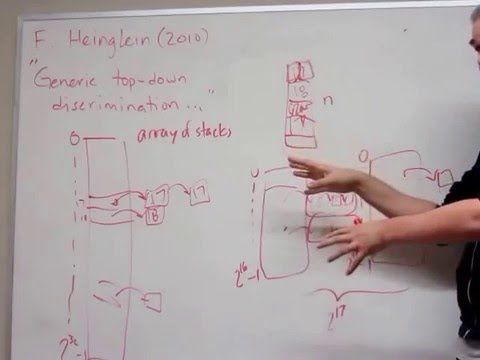 F. Heinglein (2010)
"Generic top-down
discrimination..."
0
array of stacks
17
17
18
2^32-1
18
n
0
0
17
2^16-1
2^17